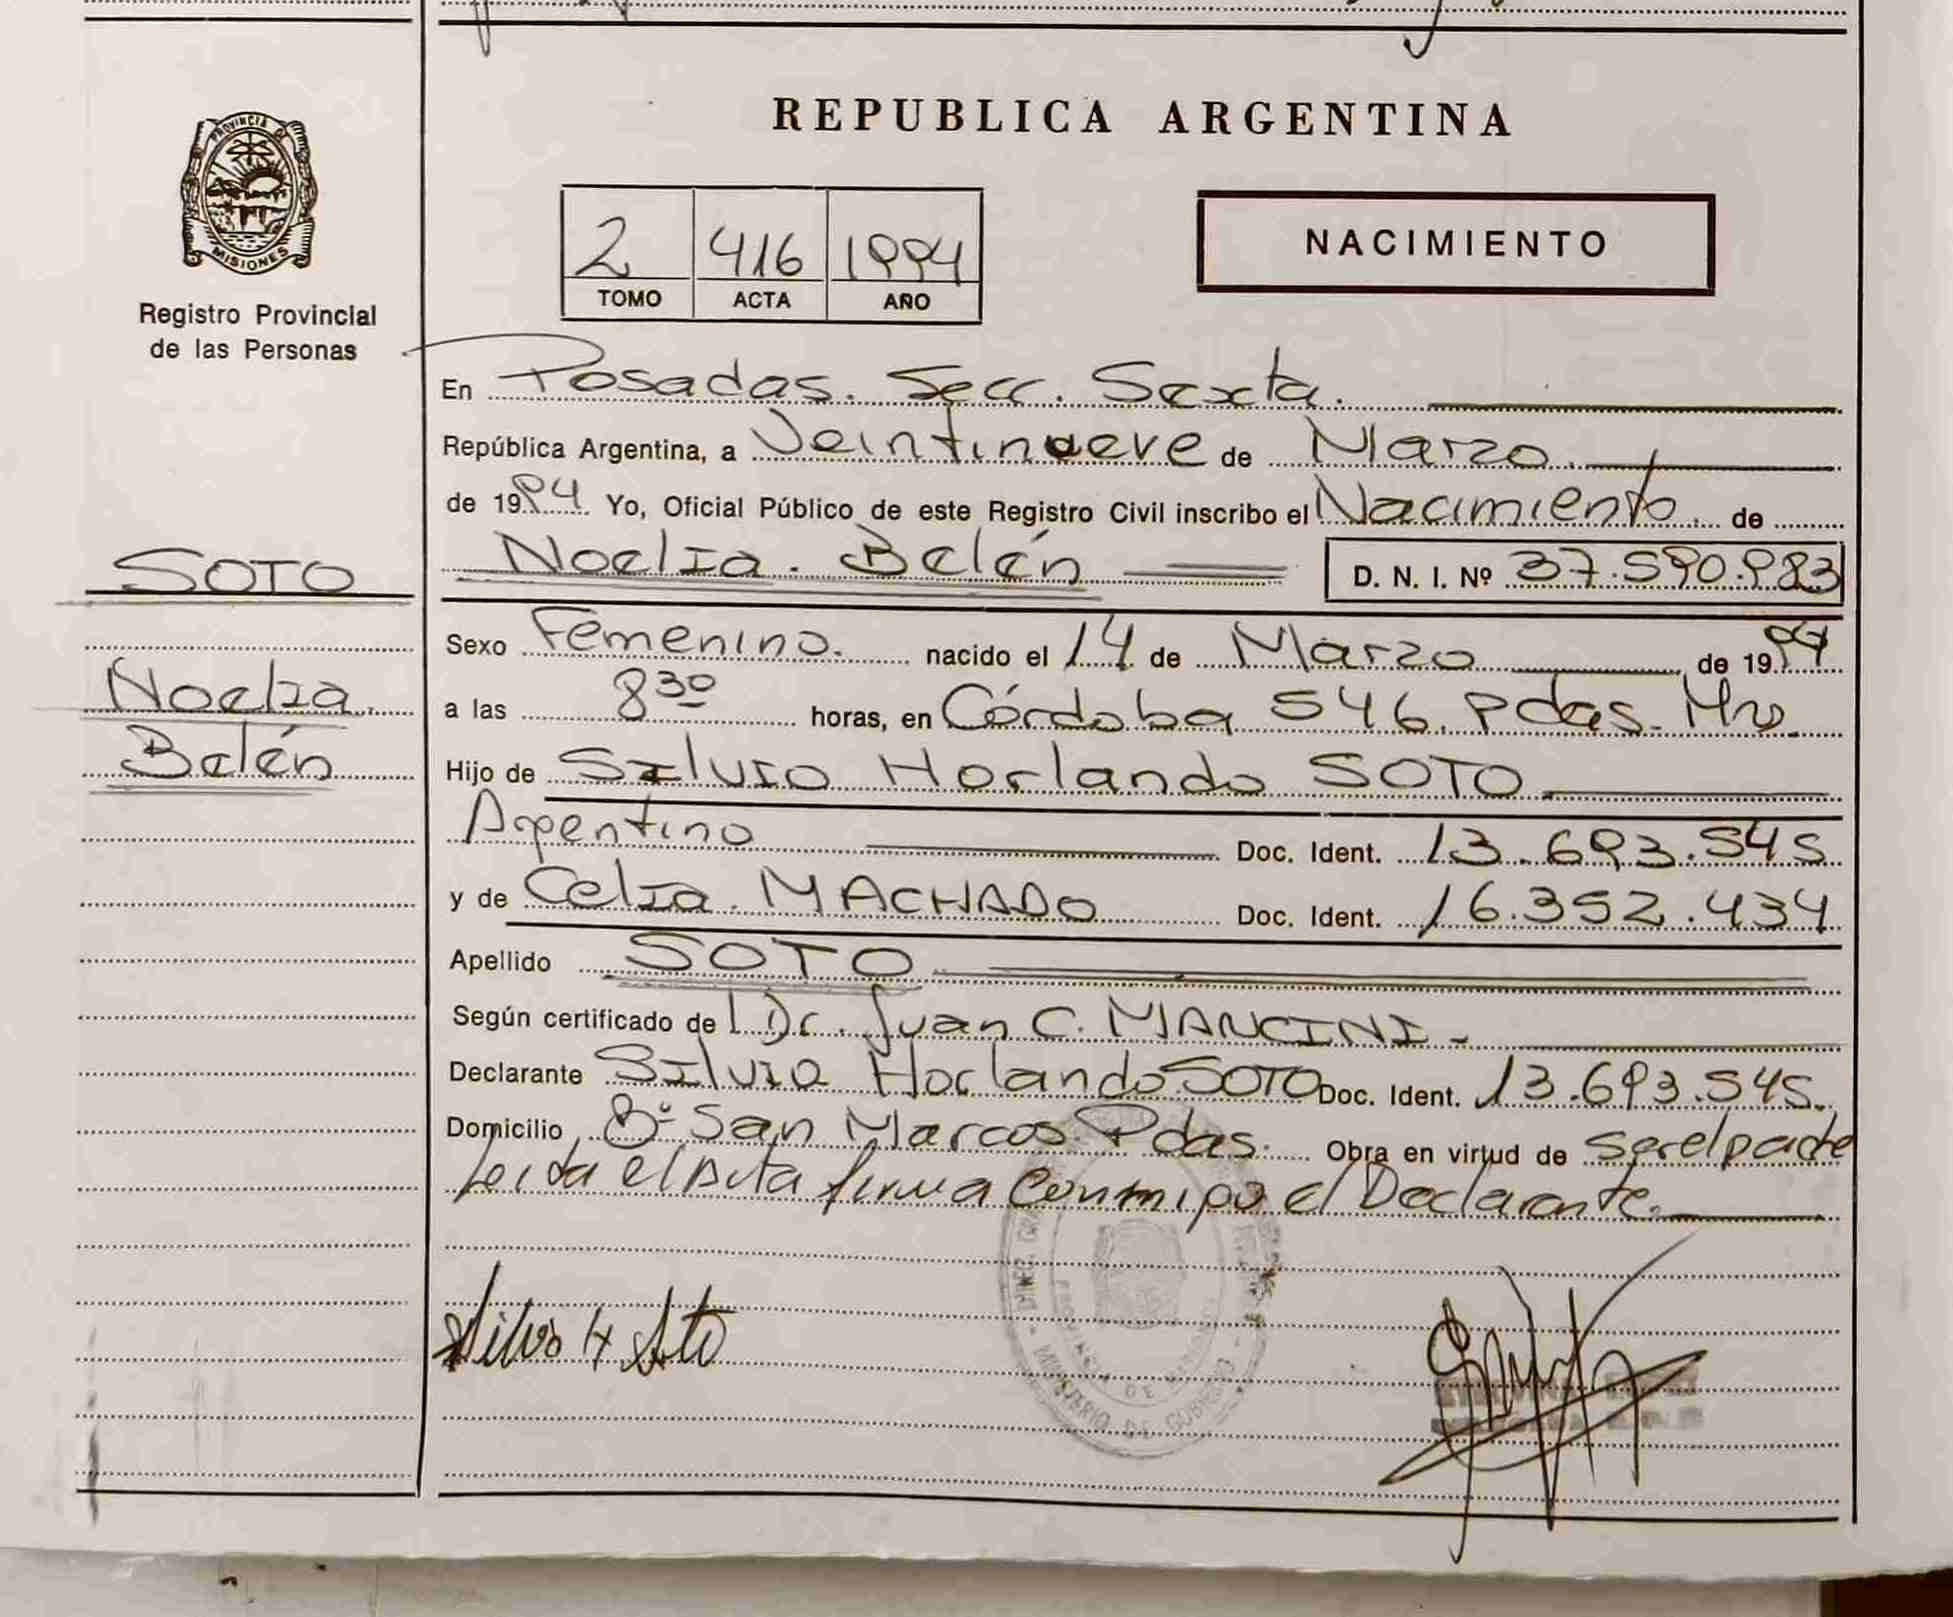 PROVINCIA DE
MISIONES
Registro Provincial
de las Personas
SOTO
Noelia
Belén
REPUBLICA ARGENTINA
2 416 1994
TOMO ACTA AÑO
NACIMIENTO
En Posadas. Secc. Sexta.
República Argentina, a Veintinueve de Marzo.
de 1994 Yo, Oficial Público de este Registro Civil inscribo el Nacimiento. de
Noelia. Belén D. N. I. Nº 37.590.983
Sexo Femenino. nacido el 14 de Marzo de 1994
a las 8 30 horas, en Córdoba 546. Pdas. Mns.
Hijo de Silvio Horlando SOTO
Argentino Doc. Ident. 13.693.545
y de Celia. MACHADO Doc. Ident. 16.352.434
Apellido SOTO
Según certificado de Dr. Juan C. MANCINI.-
Declarante Silvio Horlando SOTO Doc. Ident. 13.693.545.
Domicilio Bº San Marcos. Pdas. Obra en virtud de ser el padre
Leida el Acta firma conmigo el Declarante.
Silvio H Soto
MINISTERIO DE GOBIERNO